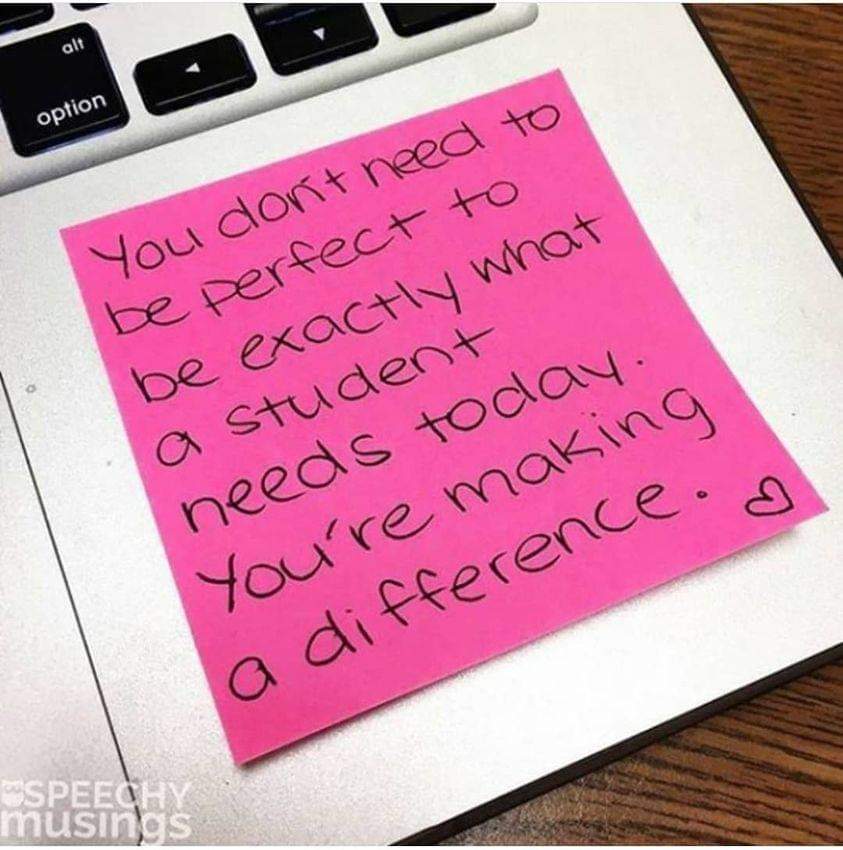 alt
option
You don't need to
be perfect to
be exactly what
a student
needs today.
You're making
a difference.
SPEECHY
musings